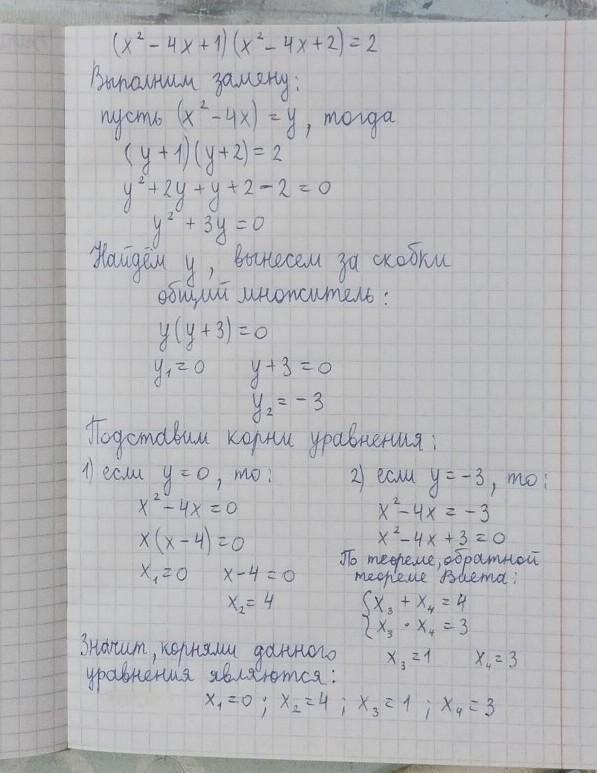 (x² - 4x + 1)(x² - 4x + 2) = 2
Выполним замену:
пусть (x² - 4x) = y, тогда
(y + 1)(y + 2) = 2
y² + 2y + y + 2 - 2 = 0
y² + 3y = 0
Найдём y, вынесем за скобки
общий множитель:
y(y + 3) = 0
y₁ = 0 y + 3 = 0
y₂ = - 3
Подставим корни уравнения:
1) если y = 0, то:
x² - 4x = 0
x(x - 4) = 0
x₁ = 0 x - 4 = 0
x₂ = 4
2) если y = -3, то:
x² - 4x = -3
x² - 4x + 3 = 0
По теореме, обратной
теореме Виета:
{ x₃ + x₄ = 4
{ x₃ · x₄ = 3
x₃ = 1 x₄ = 3
Значит, корнями данного
уравнения являются:
x₁ = 0 ; x₂ = 4 ; x₃ = 1 ; x₄ = 3